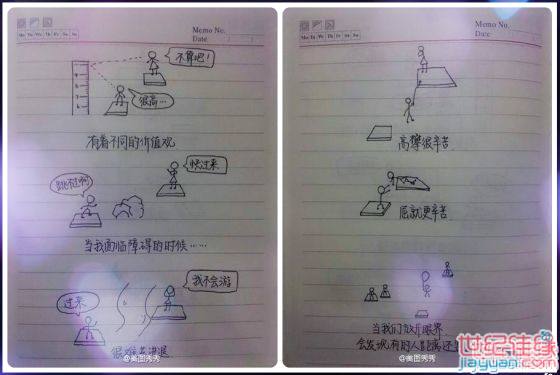 Memo No.
Date
Mo Tu We Th Fr Sa Su
不算吧!
很高…
有着不同的价值观
快过来
跳不过啊
当我面临障碍的时候……
我不会游
过来
很难共进退
@美图秀秀
Memo No.
Date
Mo Tu We Th Fr Sa Su
高攀很辛苦
屈就更辛苦
当我们放开眼界
会发现有的人距离还
@美图秀秀
世纪佳缘
jiayuan.com